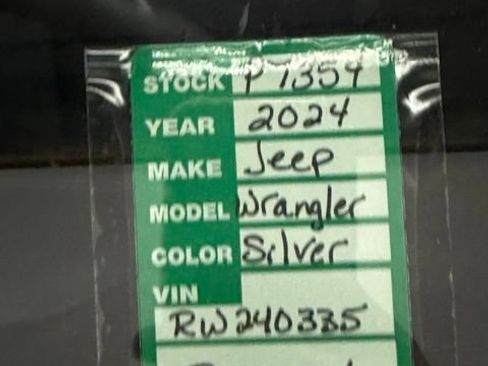 STOCK P7359
YEAR 2024
MAKE Jeep
MODEL Wrangler
COLOR Silver
VIN
RW240335